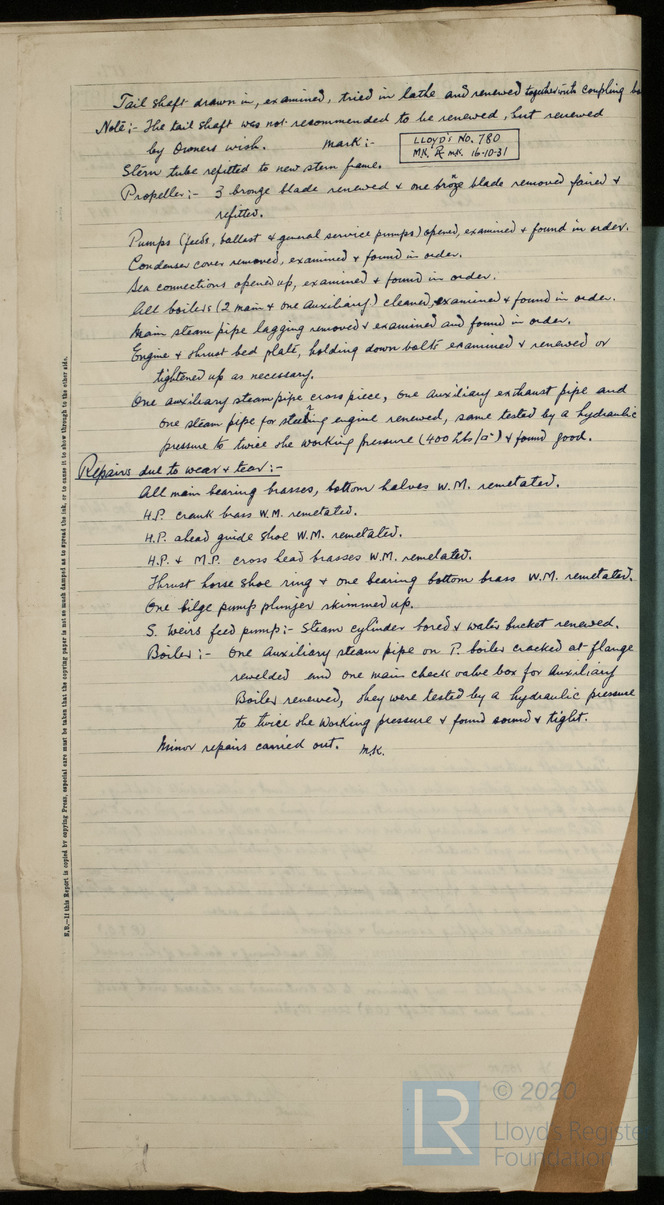 Tail shaft drawn in, examined, tried in lathe and renewed together with coupling
Note:- The tail shaft was not recommended to be renewed, but renewed
by Owners wish. Mark:- LLOYD'S No. 780
MK. LR MK. 16-10-31
Stern tube refitted to new stern frame.
Propeller:- 3 bronze blade renewed & one broze blade removed faired &
refitted.
Pumps (feeds, ballast & general service pumps) opened, examined & found in order.
Condenser cover removed, examined & found in order.
Sea connections opened up, examined & found in order.
All boilers (2 main & one auxiliary) cleaned, examined & found in order.
Main steam pipe lagging removed & examined and found in order.
Engine & thrust bed plate, holding down bolts examined & renewed or
tightened up as necessary.
One auxiliary steam pipe cross piece, one auxiliary exhaust pipe and
one steam pipe for steering engine renewed, same tested by a hydraulic
pressure to twice the working pressure (400 lbs/□") & found good.
Repairs due to wear & tear:-
All main bearing brasses, bottom halves W.M. remetated.
H.P. crank brass W.M. remetated.
H.P. ahead guide shoe W.M. remetated.
H.P. & M.P. cross head brasses W.M. remetated.
Thrust horse shoe ring & one bearing bottom brass W.M. remetated.
One bilge pump plunjer skimmed up.
S. Weirs feed pump:- Steam cylinder bored & water bucket renewed.
Boiler:- One Auxiliary steam pipe on P. boiler cracked at flange
rewelded and one main check valve box for Auxiliary
Boiler renewed, they were tested by a hydraulic pressure
to twice the working pressure & found sound & tight.
Minor repairs carried out. M.K.
N.B.—If this Report is copied by copying Press, especial care must be taken that the copying paper is not so much damped as to spread the ink, or to cause it to show through to the other side.
LR © 2020
Lloyd's Register
Foundation